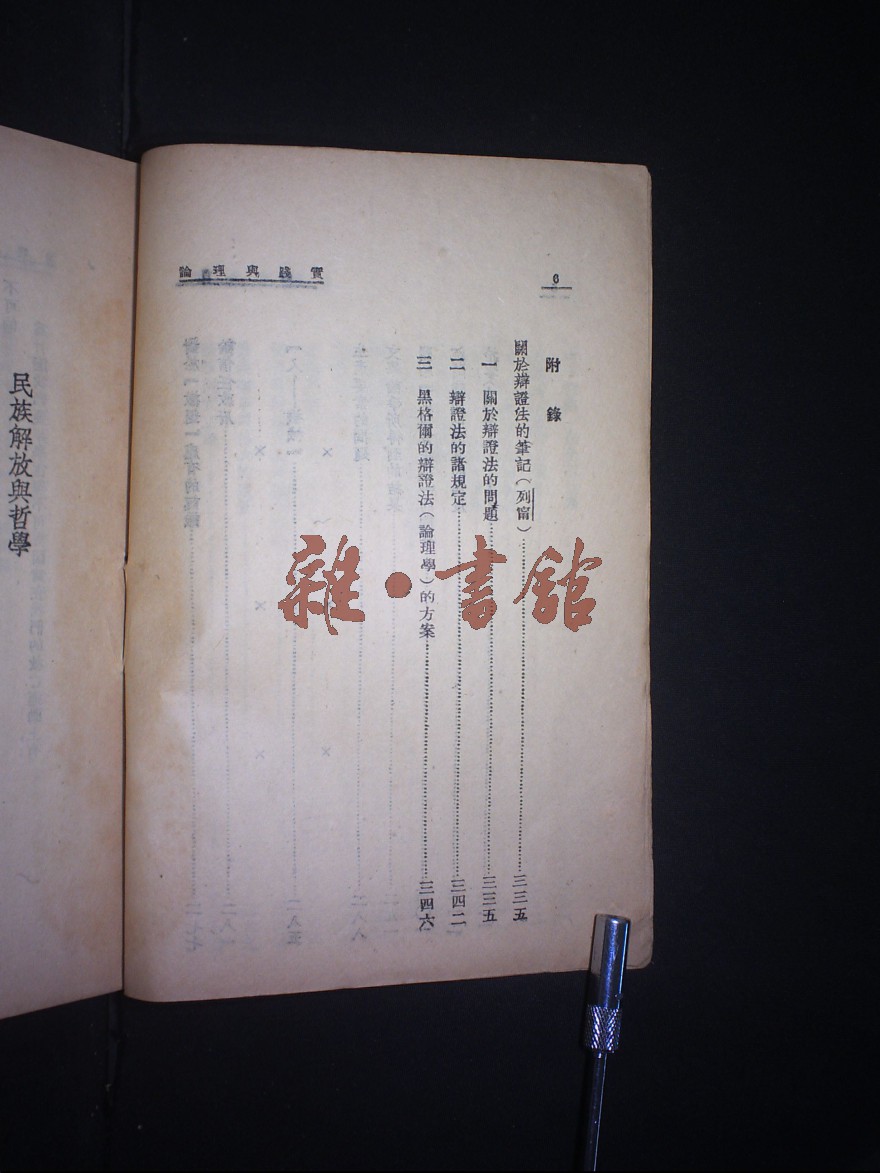 論理與踐實
6
附錄
關於辯證法的筆記（列甯）……三三五
一 關於辯證法的問題……三三五
二 辯證法的諸規定……三四二
三 黑格爾的辯證法（論理學）的方案……三四六
民族解放與哲學
雜·書館